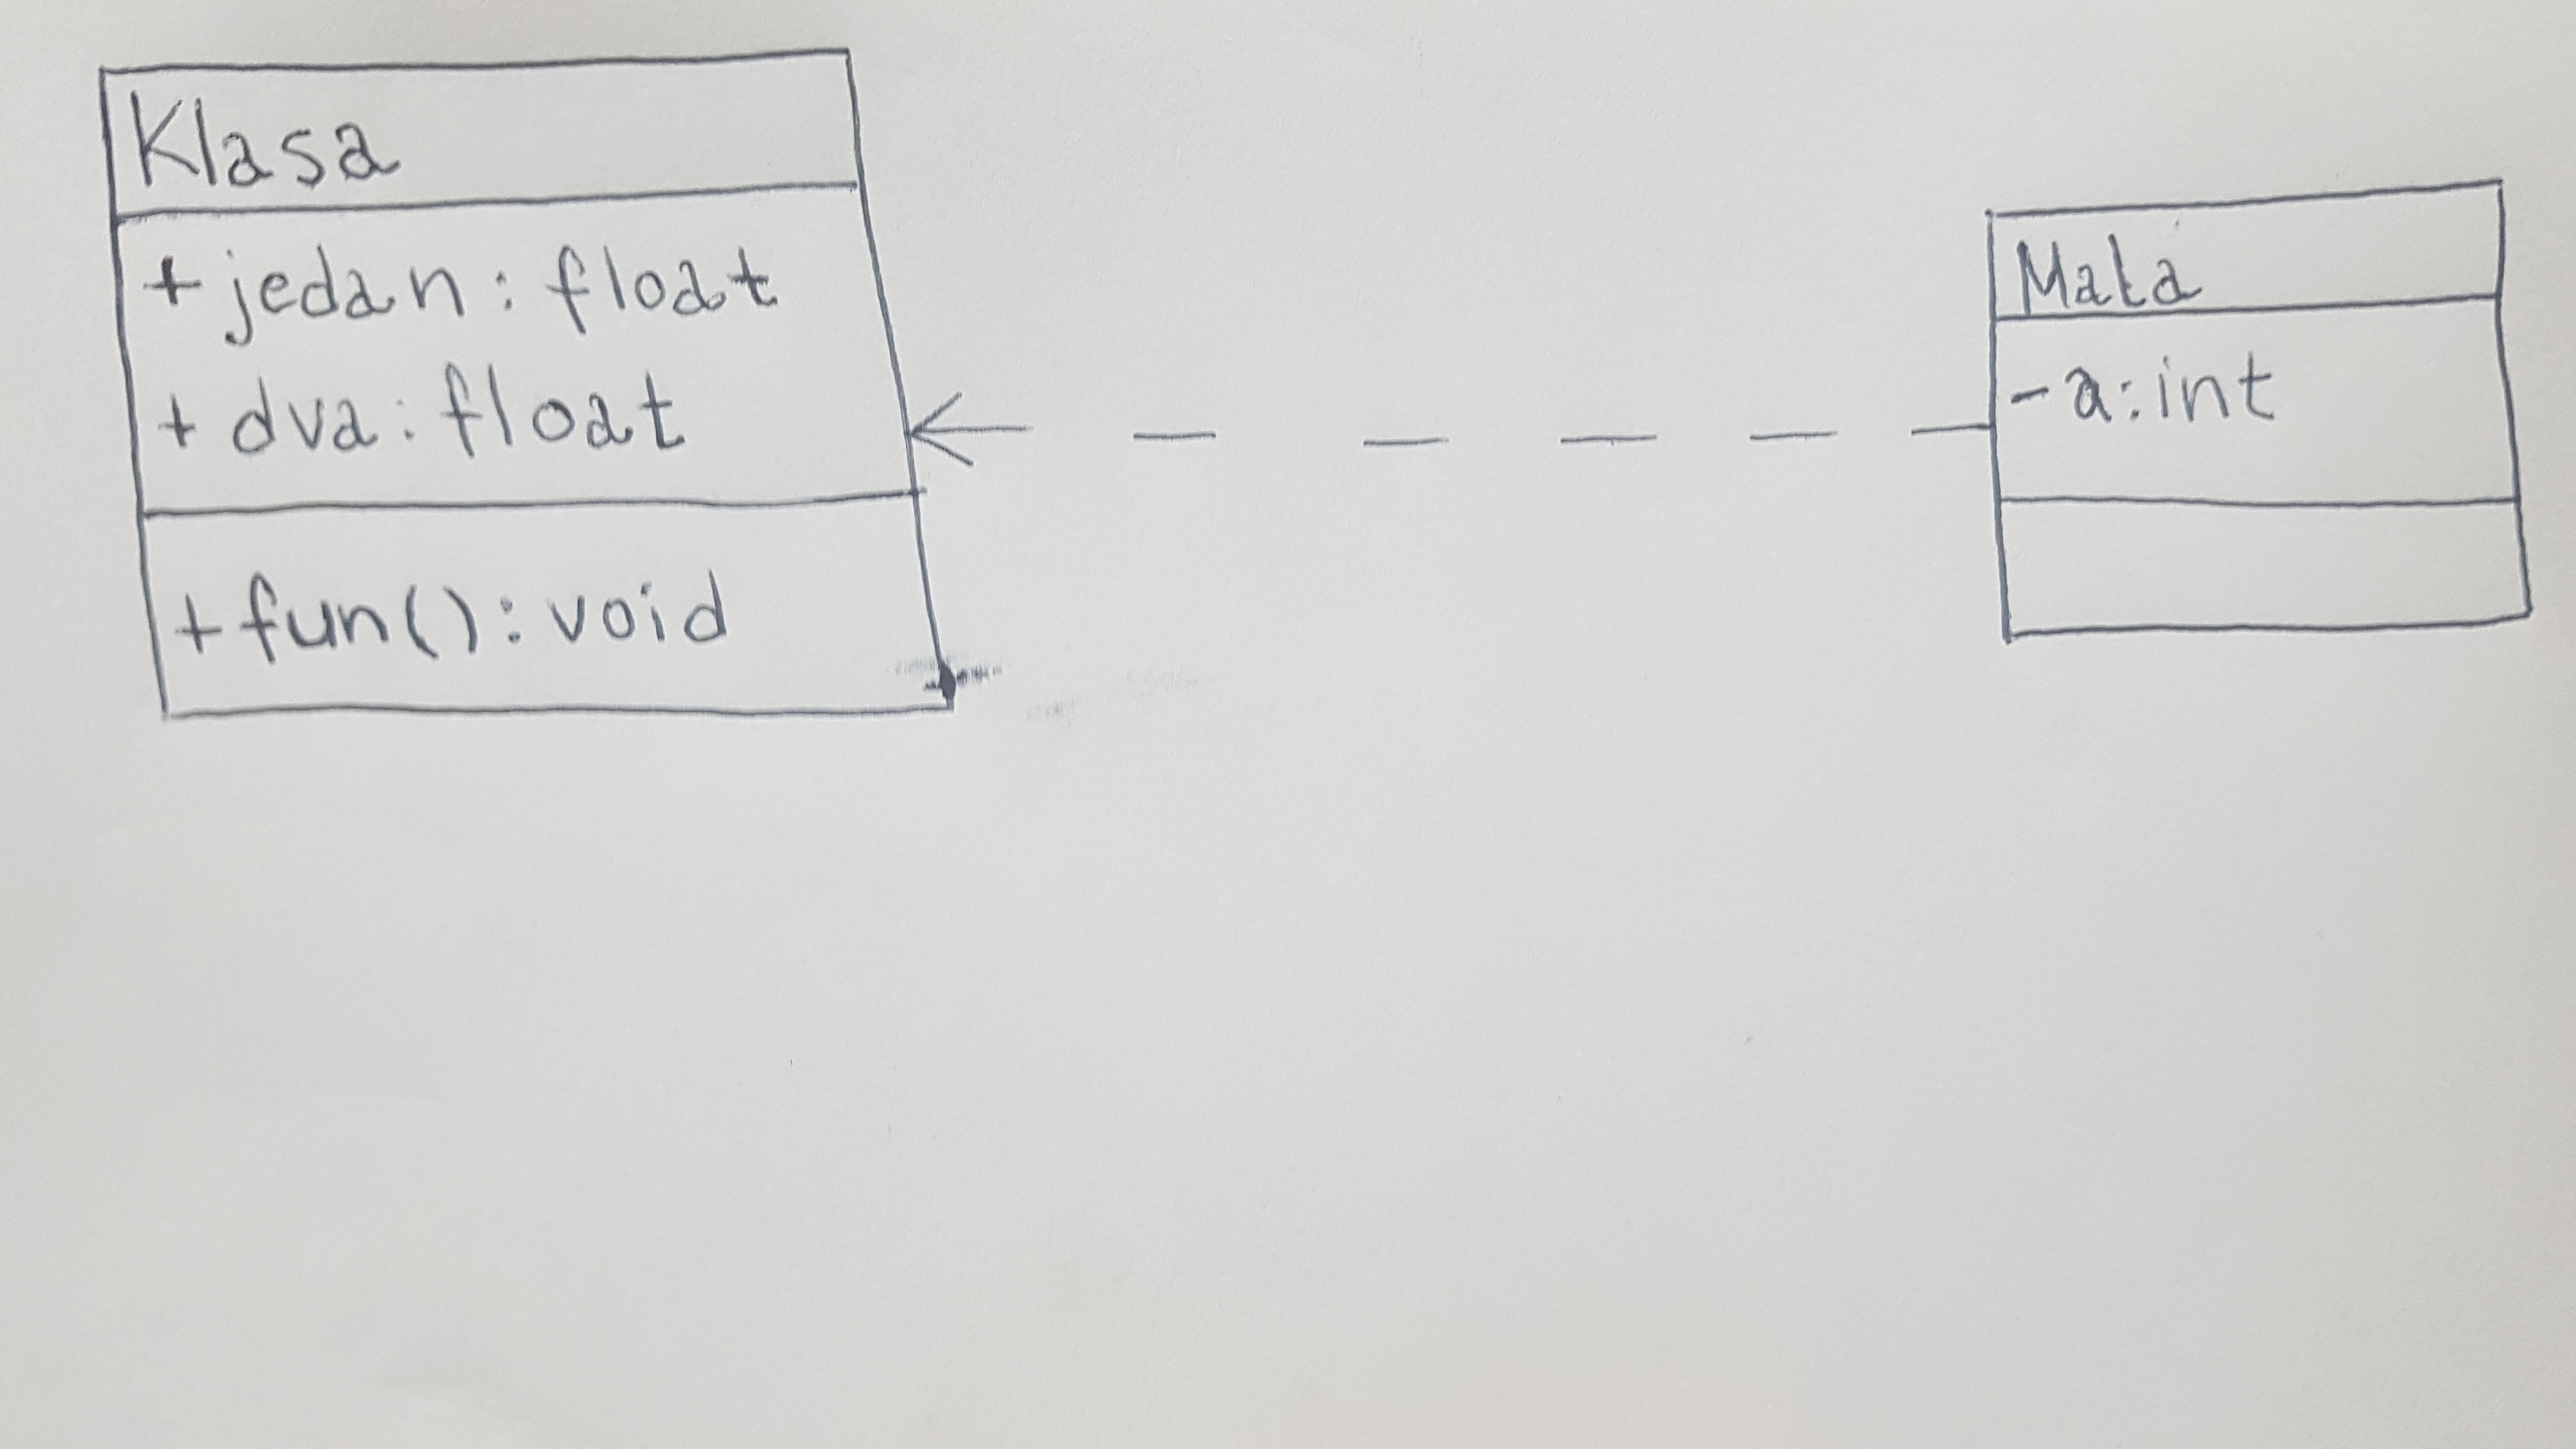 Klasa
+ jedan: float
+ dva: float
+ fun(): void
Mala
- a: int